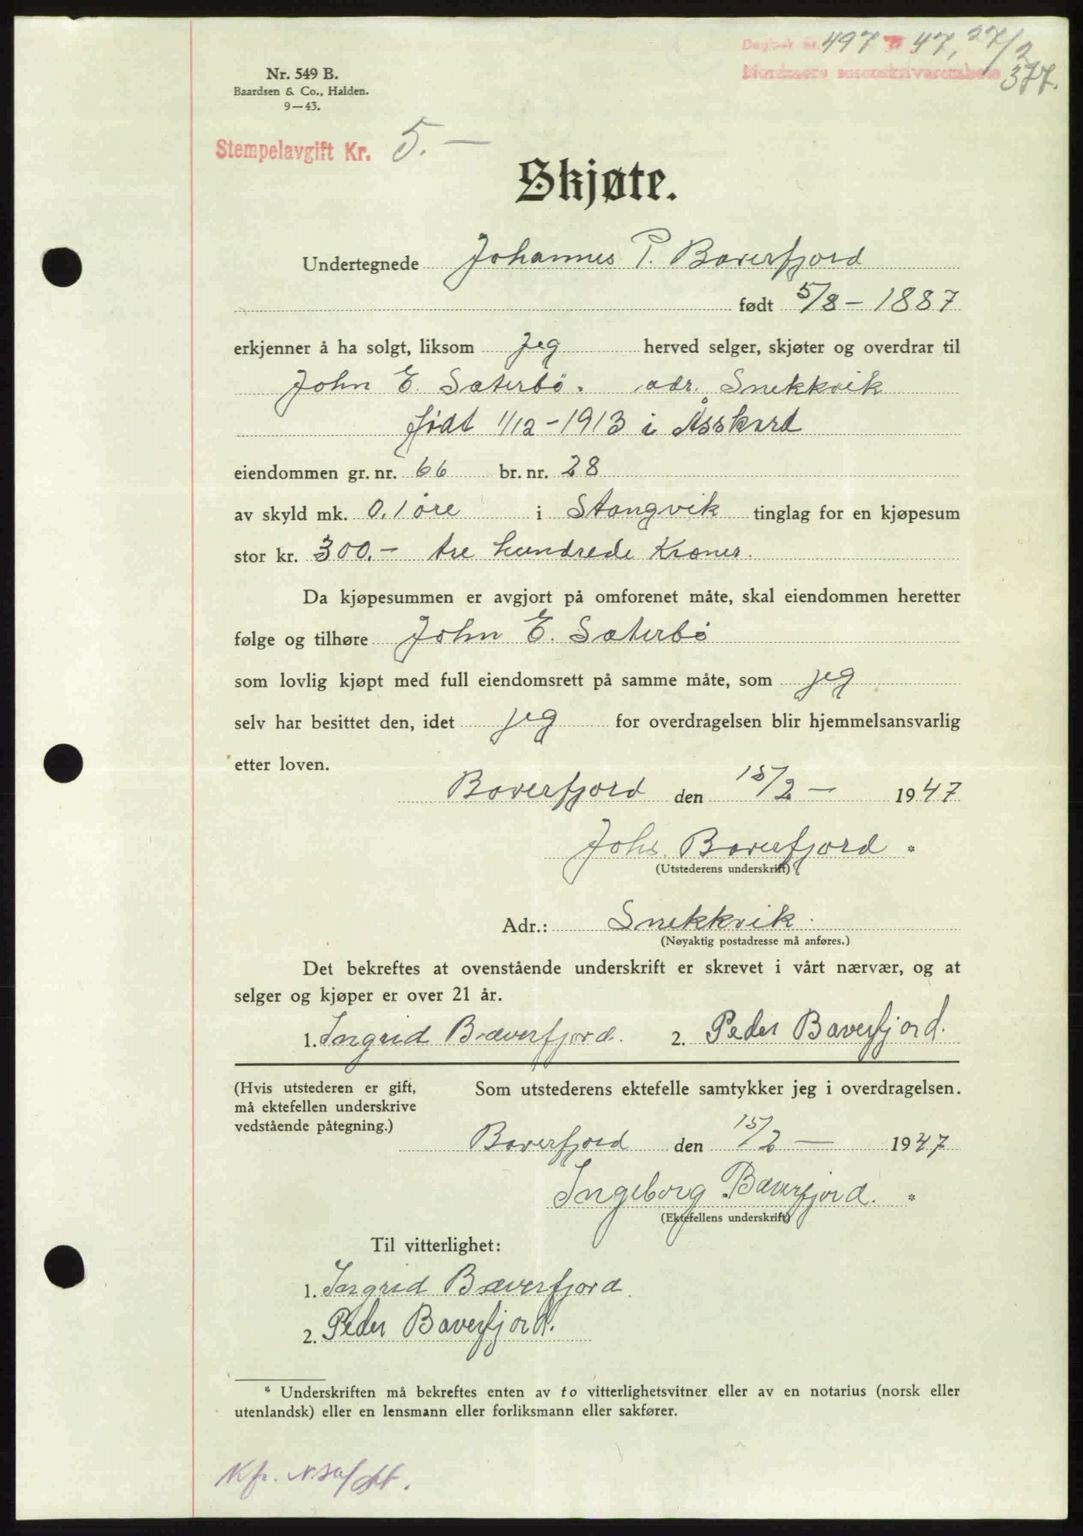 Dagbok nr. 497 47, 27/2
Nordmøre sorenskriverembete 377.
Nr. 549 B.
Baardsen & Co., Halden.
9—43.
Stempelavgift Kr. 5.—
Skjøte.
Undertegnede Johannes P. Bæverfjord
født 5/8 - 1887
erkjenner å ha solgt, liksom jeg herved selger, skjøter og overdrar til
John E. Sæterbö. adr. Snekkvik
født 1/12 - 1913 i Åsskard
eiendommen gr. nr. 66 br. nr. 28
av skyld mk. 0.1 öre i Stangvik tinglag for en kjøpesum
stor kr. 300.- tre hundrede Kroner.
Da kjøpesummen er avgjort på omforenet måte, skal eiendommen heretter
følge og tilhøre John E. Sæterbö
som lovlig kjøpt med full eiendomsrett på samme måte, som jeg
selv har besittet den, idet jeg for overdragelsen blir hjemmelsansvarlig
etter loven.
Bæverfjord den 15/2 — 1947
Johs. Bæverfjord *
(Utstederens underskrift)
Adr.: Snekkvik.
(Nøyaktig postadresse må anføres.)
Det bekreftes at ovenstående underskrift er skrevet i vårt nærvær, og at
selger og kjøper er over 21 år.
1. Ingrid Bæverfjord. 2. Peder Bæverfjord.
(Hvis utstederen er gift, Som utstederens ektefelle samtykker jeg i overdragelsen.
må ektefellen underskrive
vedstående påtegning.)
Bæverfjord den 15/2 — 1947
Ingeborg Bæverfjord. *
(Ektefellens underskrift)
Til vitterlighet:
1. Ingrid Bæverfjord.
2. Peder Bæverfjord.
* Underskriften må bekreftes enten av to vitterlighetsvitner eller av en notarius (norsk eller
utenlandsk) eller en lensmann eller forliksmann eller sakfører.
Kfr.